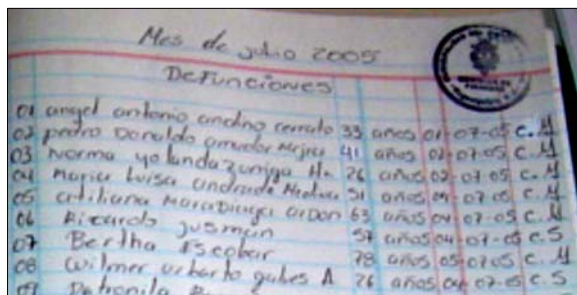 Mes de julio 2005
Defunciones
01 angel antonio andino cerrato 33 años 01-07-05 C.M
02 pedro Donaldo amador Mejia 41 años 02-07-05 C.M
03 Norma yolanda zuniga 26 años 02-07-05 C.M
04 Maria Luisa andrade Medina 51 años 04-07-05 C.M
05 Maradiaga ordon 63 años 04-07-05 C.M
06 Ricardo jusman 57 años 04-07-05 C.S
07 Bertha Escobar 78 años 05-07-05 C.M
08 Wilmer A 26 años 04-07-05 C.S
09 Petronila